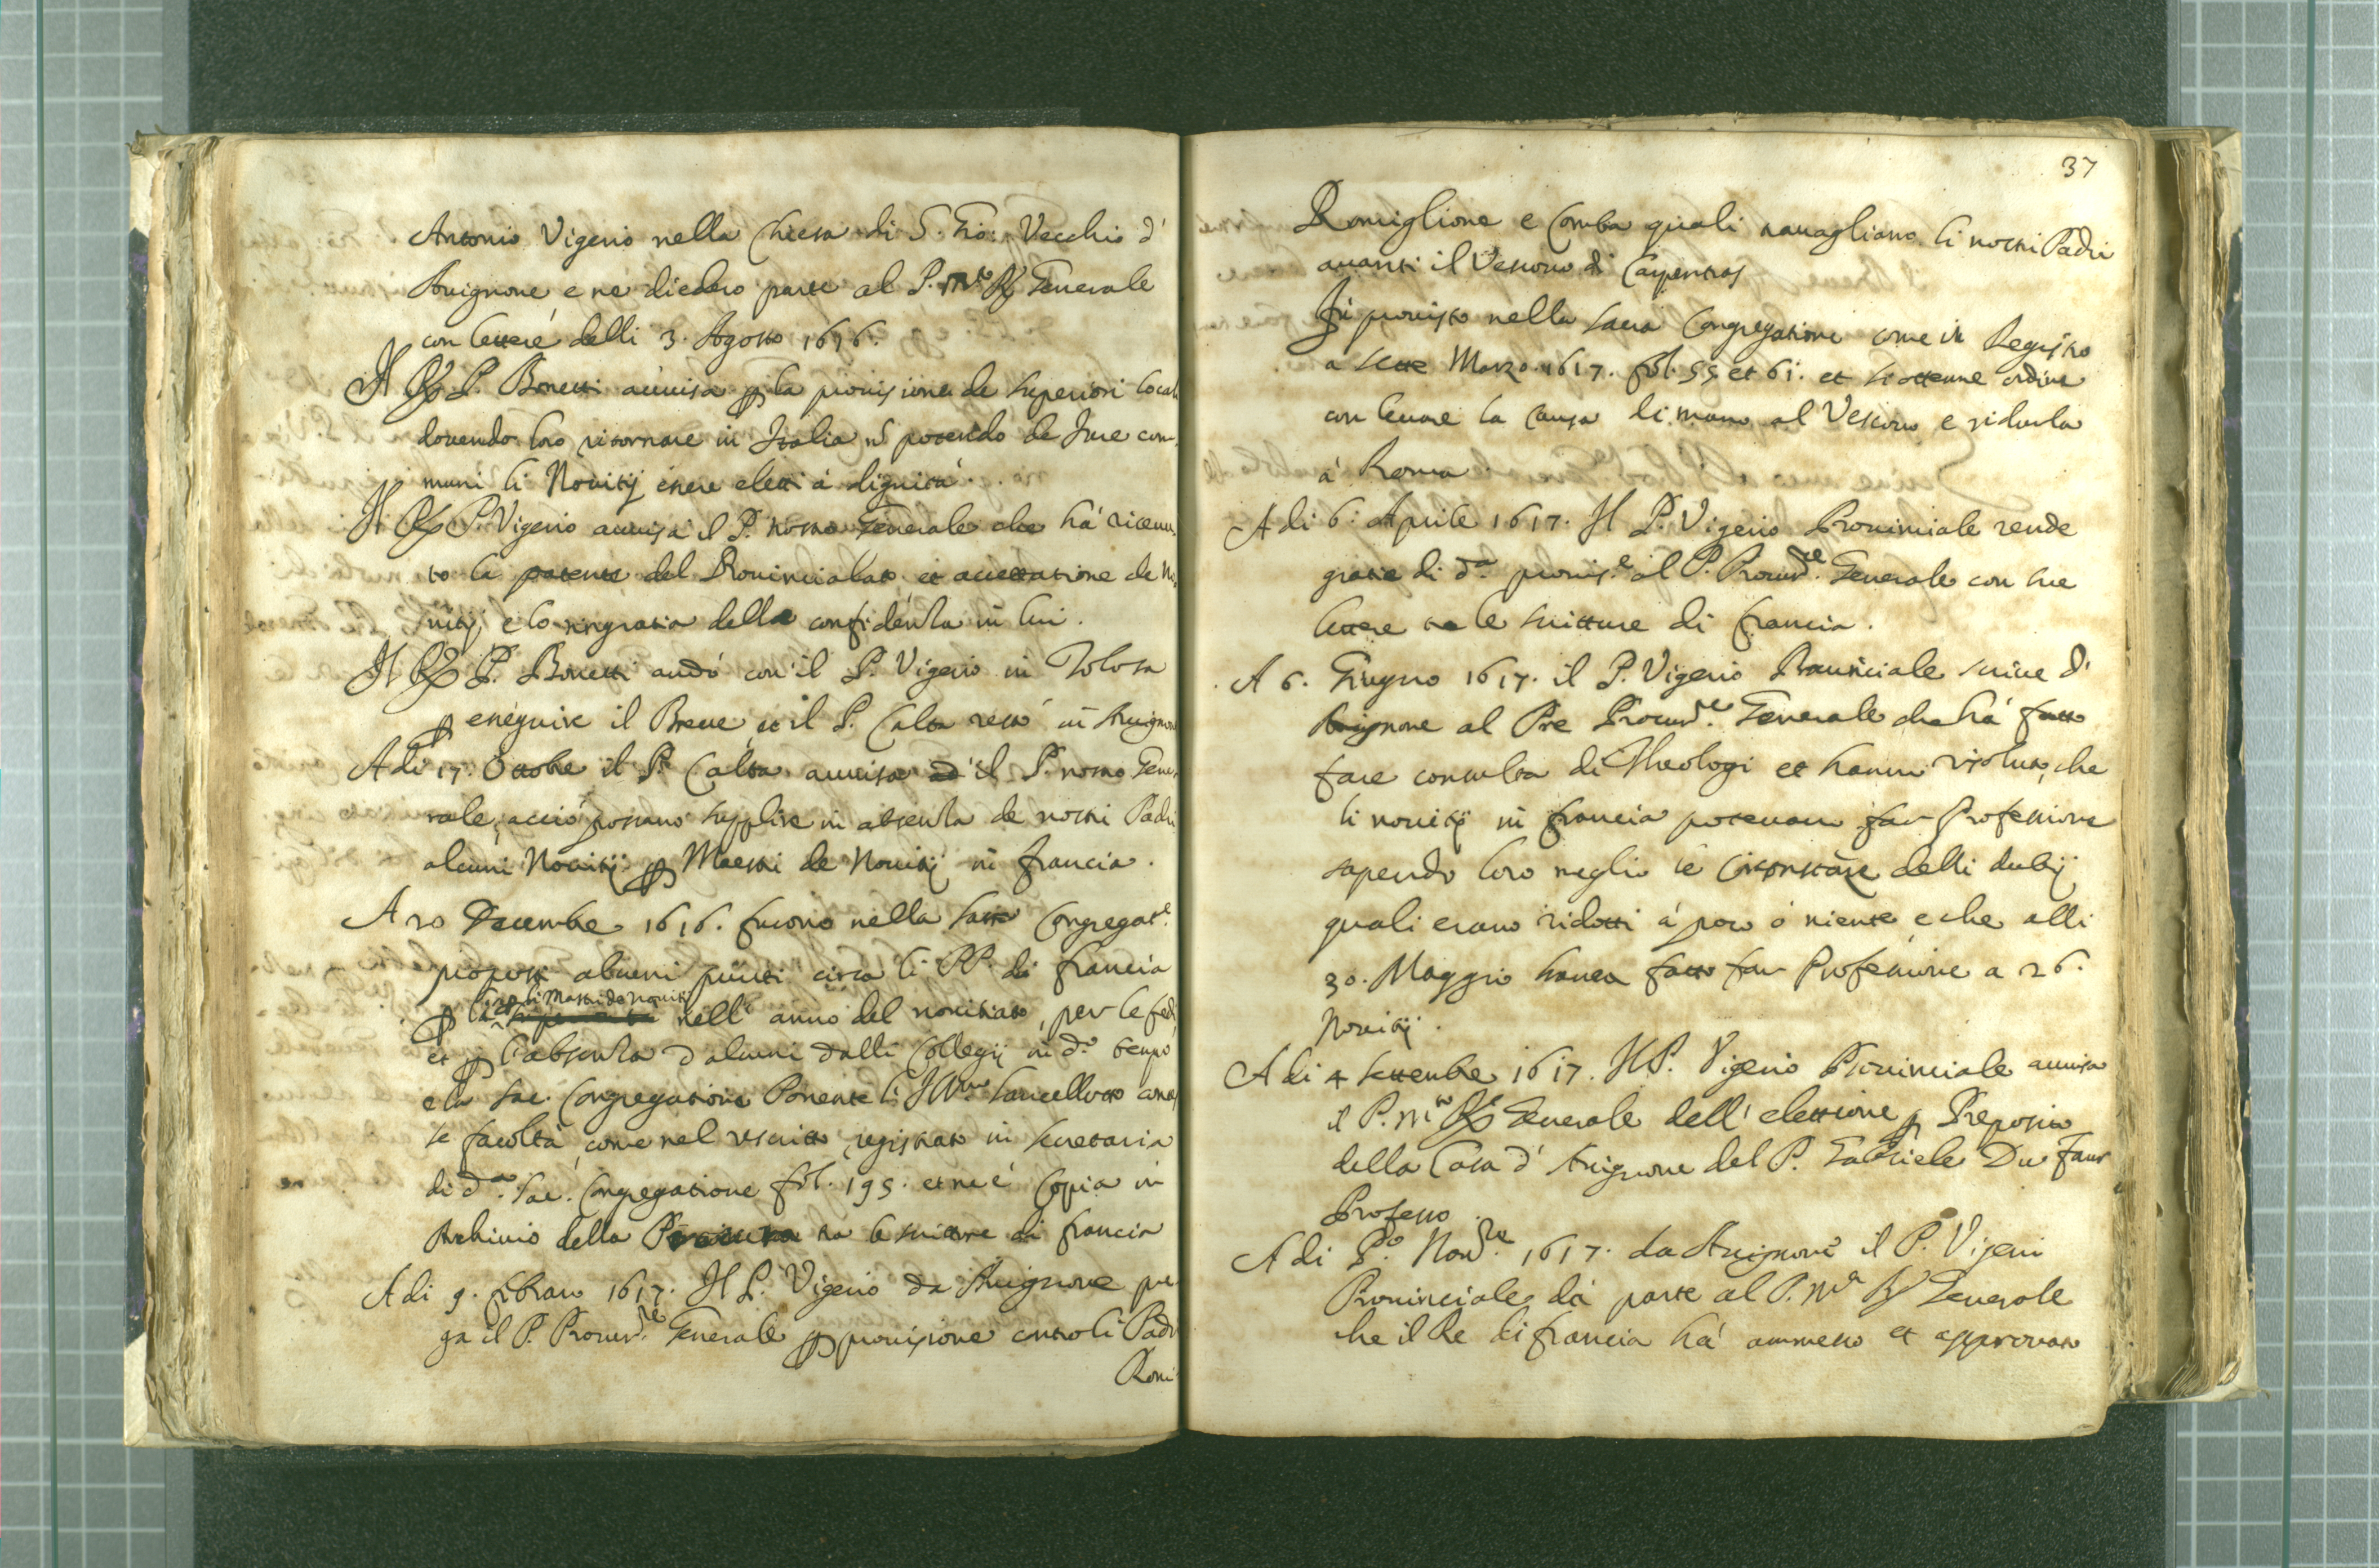 Antonio Vigerio nella Chiesa di S. Gio: Vecchio d'
Avignone e ne diedero parte al P. Generale
con lettere delli 3. Agosto 1616.
Il P. Bonetti auuisa la prouisione de superiori local
douendo loro ritornare in Italia nõ potendo de Jure com
muni li Nouitij essere eletti á dignitá.
Il P. Vigerio auuisa il P. nostro Generale che há riceuu
to la patente del Prouincialato et accettatione de No
uitij, e lo ringratia della confidenza in lui.
Il P. Bonetti andó con il P. Vigerio in Tolosa
p eseguire il Breue, et il P. Calta restó in Auignone
A di 17. Ottobre il P. Calta auuisa il P. nostro Gene
rale, acció possano supplire in absenza de nostri Padri
alcuni Nouitij p Maestri de Nouitij in francia.
A 20 Decembre 1616. furono nella Sacra Congregat.e
proposti alcuni punti circa li PP. di francia
p li Mastri de nouitij nell' anno del nouitiato, per le fedi
et p l'absenza d'alcuni dalli Collegij in d.o tempo
e la Sac. Congregatione Ponente l' Ill.mo Lancellotto conces
se facoltá, come nel rescritto registrato in secretaria
di d.a Sac. Congregatione fol. 195. et ne é Copia in
Archiuio della Procura tra le scritture di francia
A di 9. febraro 1617. Il P. Vigerio da Auignone pre
ga il P. Procur.re Generale p prouisione contro li Padri
Romi
37
Romiglione e Comba quali trauagliano li nostri Padri
auanti il Vescouo di Carpentras
Fú prouisto nella sacra Congregatione come in Registro
a sette Marzo. 1617. fol. 55. et 61. et si ottenne ordine
con leuare la causa di mano al Vescouo e ridurla
á Roma.
A di 6. Aprile 1617. Il P. Vigerio Prouinciale rende
gratie di d.a prouis.e al P. Procur.re Generale con sue
lettere tra le scritture di francia.
A 6. Giugno 1617. il P. Vigerio Prouinciale scriue d'
Auignone al Pre Procur.re Generale che há fatto
fare consulta di Theologi et hanno risoluto, che
li nouitij in francia poteuano far Professione
sapendo loro meglio le circonstãze delli dubij
quali erano ridotti á poco ó niente, e che alli
30. Maggio hauea fatto far Professione a 26.
Nouitij.
A di 4 settembre 1617. Il P. Vigerio Prouinciale auuisa
il P. Generale dell' elettione p Preposito
della Casa d' Auignone del P. Gabriele Du Faur
Professo.
A di P.o Nou.re 1617. da Auignone il P. Vigeri
Prouinciale dá parte al P. Generale
che il Re di francia há ammesso et approuato